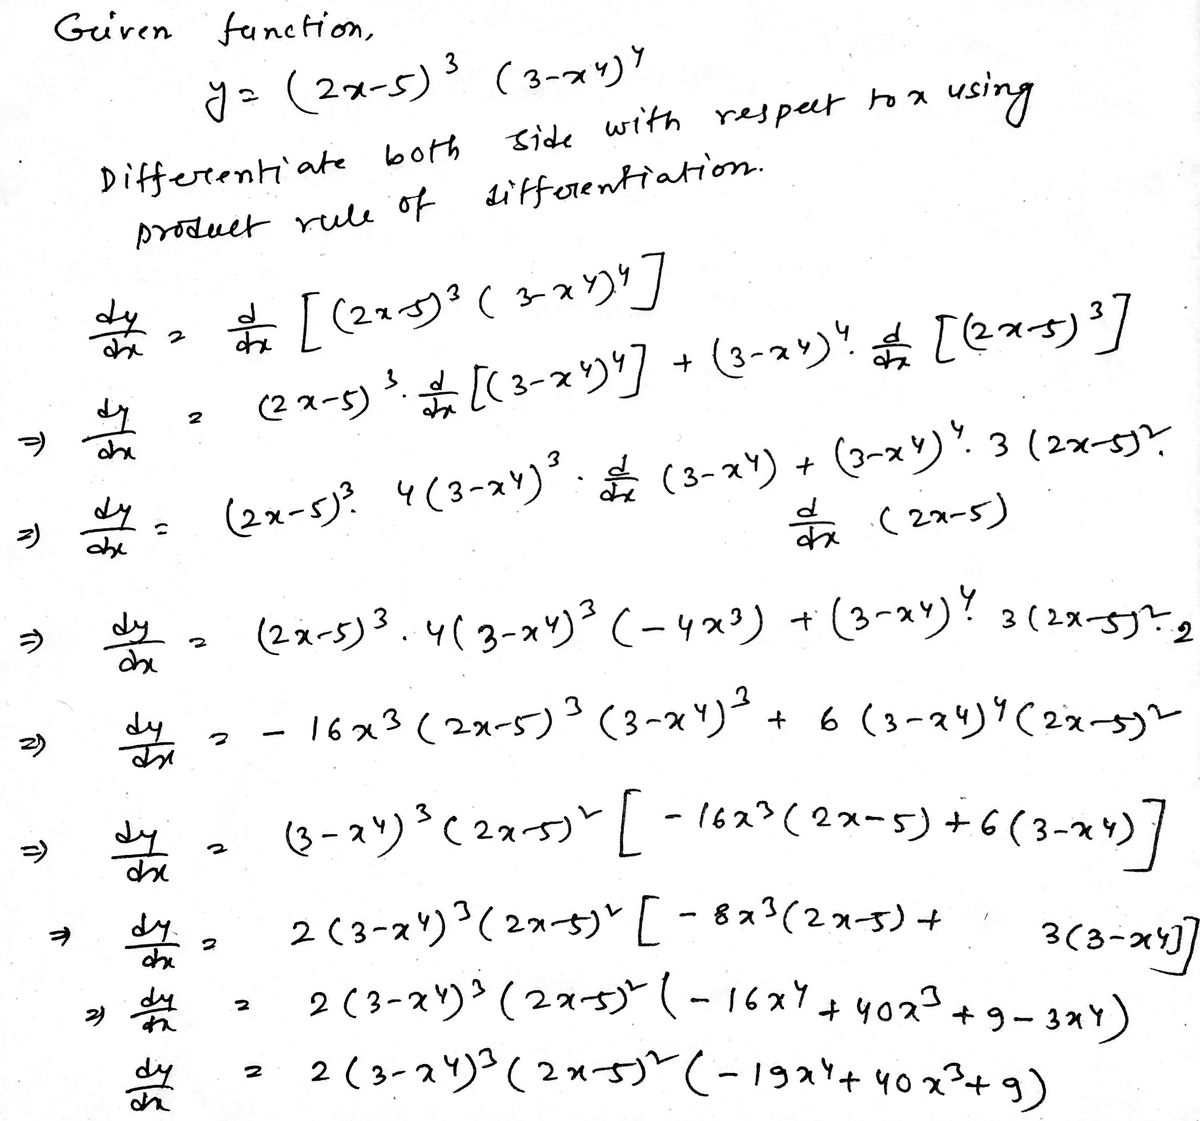 Given function,
y = (2x-5)³ (3-x⁴)⁴
Differentiate both side with respect to x using
product rule of differentiation.
dy/dx = d/dx [(2x-5)³ (3-x⁴)⁴]
⇒ dy/dx = (2x-5)³ · d/dx [(3-x⁴)⁴] + (3-x⁴)⁴ · d/dx [(2x-5)³]
⇒ dy/dx = (2x-5)³ · 4(3-x⁴)³ · d/dx (3-x⁴) + (3-x⁴)⁴ · 3 (2x-5)² ·
d/dx (2x-5)
⇒ dy/dx = (2x-5)³ · 4(3-x⁴)³ (-4x³) + (3-x⁴)⁴ · 3(2x-5)² · 2
⇒ dy/dx = - 16x³ (2x-5)³ (3-x⁴)³ + 6 (3-x⁴)⁴ (2x-5)²
⇒ dy/dx = (3-x⁴)³ (2x-5)² [ - 16x³ (2x-5) + 6 (3-x⁴)]
⇒ dy/dx = 2(3-x⁴)³ (2x-5)² [ - 8x³ (2x-5) + 3(3-x⁴)]
⇒ dy/dx = 2(3-x⁴)³ (2x-5)² (-16x⁴ + 40x³ + 9 - 3x⁴)
dy/dx = 2(3-x⁴)³ (2x-5)² (-19x⁴ + 40x³ + 9)